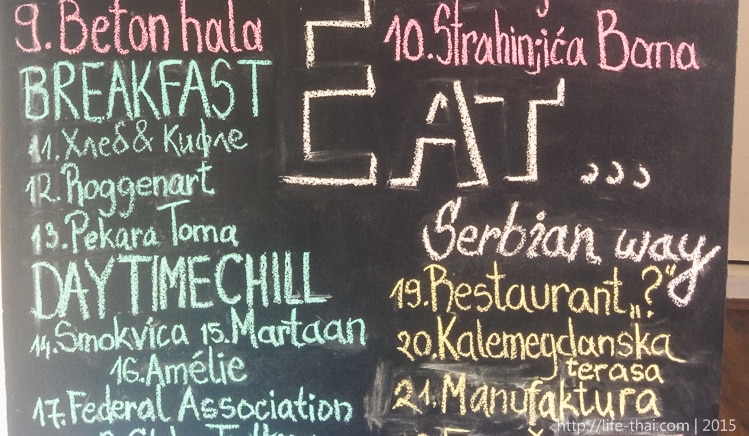 9. Beton hala
10. Strahinjića Bana
BREAKFAST
11. Хлеб & Кифле
12. Roggenart
13. Pekara Toma
DAYTIMECHILL
14. Smokvica 15. Martaan
16. Amélie
17. Federal Association
EAT...
Serbian way
19. Restaurant „?“
20. Kalemegdanska
terasa
21. Manufaktura
http://life-thai.com | 2015